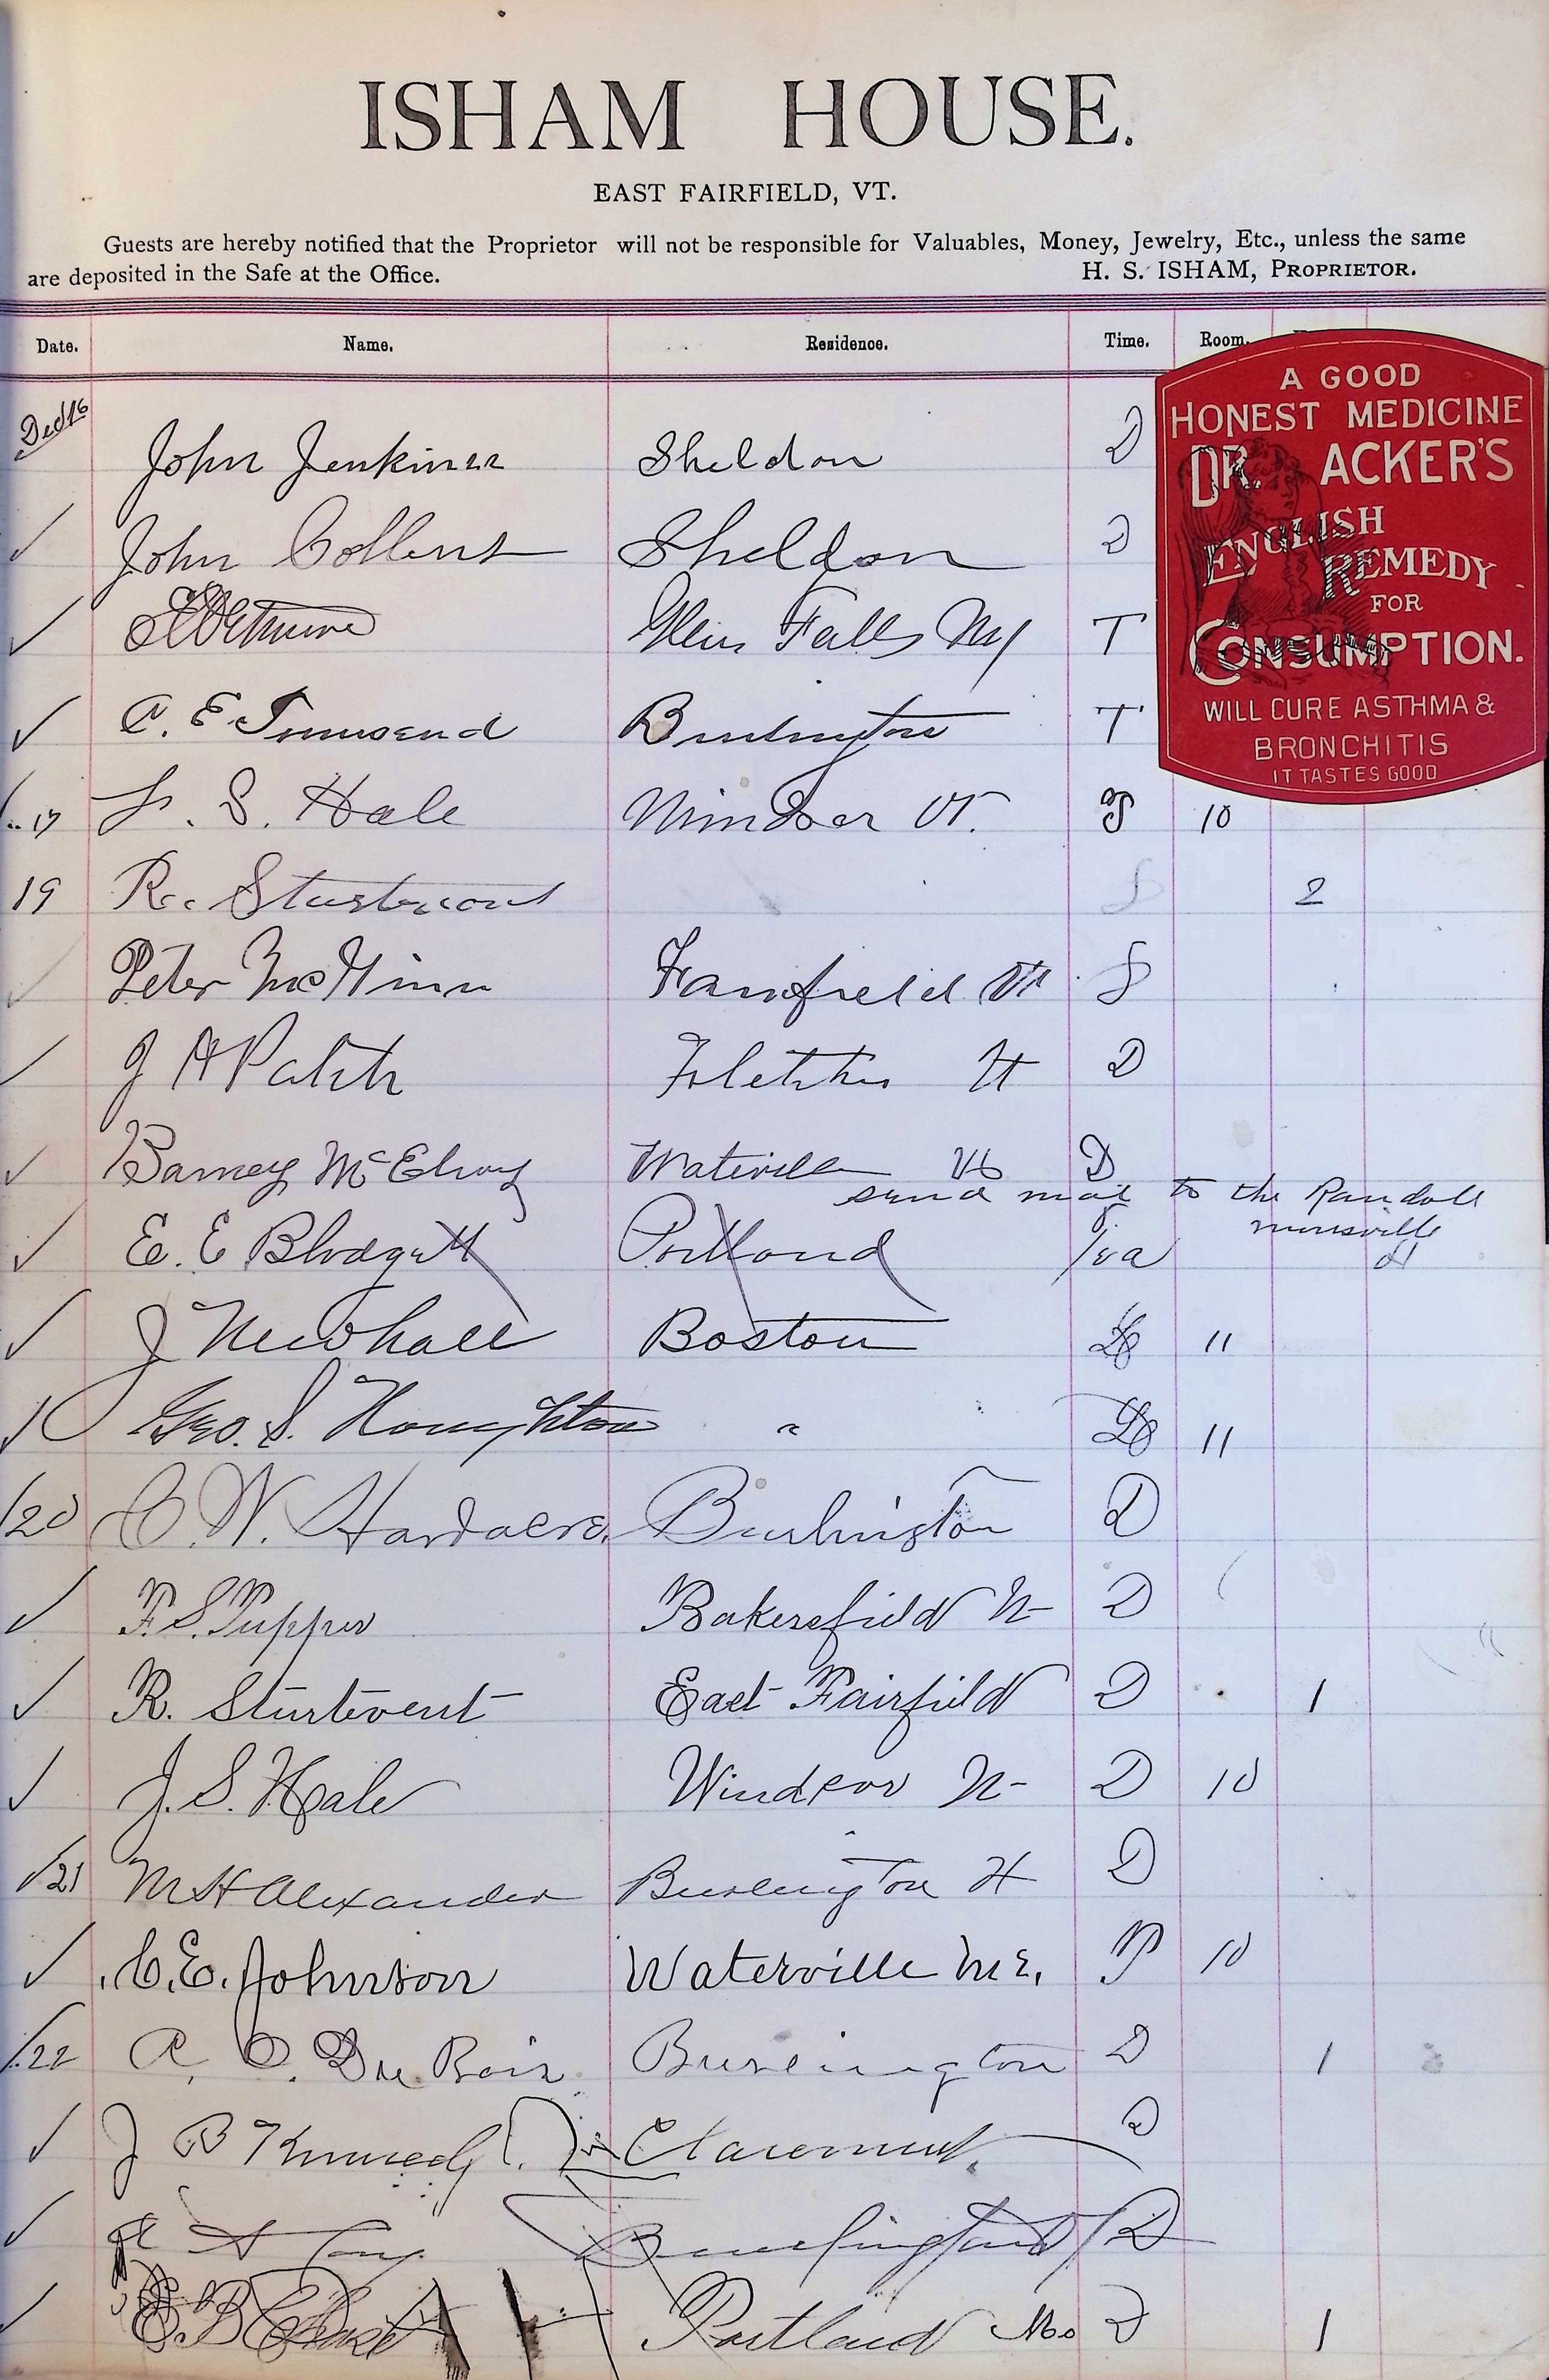 ISHAM HOUSE.
EAST FAIRFIELD, VT.
Guests are hereby notified that the Proprietor will not be responsible for Valuables, Money, Jewelry, Etc., unless the same
are deposited in the Safe at the Office. H. S. ISHAM, PROPRIETOR.
Date. Name. Residence. Time. Room.
A GOOD
HONEST MEDICINE
DR. ACKER'S
ENGLISH
REMEDY
FOR
CONSUMPTION.
WILL CURE ASTHMA &
BRONCHITIS
IT TASTES GOOD
Dec 16 John Jenkines Sheldon D
John Collins Sheldon D
Glens Falls NY T
C. E. Townsend Burlington T
17 S. Hale Windsor Vt. 10
19 R. 2
Peter McGinn Fairfield Vt S
J H Patch Fletcher Vt D
Barney McElroy Waterville Vt D
send mail to the Randall
E. E Blodgett Portland Tea Morrisville
J Newhall Boston 11
Geo. S. Houghton " 11
20 C. W. Burlington D
F. S. Tupper Bakersfield Vt D
R. Sturtevent East Fairfield D 1
J. S. Hale Windsor Vt D 10
21 M H Alexander Burlington Vt D
C. E. Johnson Waterville Me. 10
22 A. O. Du Bois Burlington D 1
J B Kennedy Claremont D
Burlington D
E. B. Chase Portland Me D 1